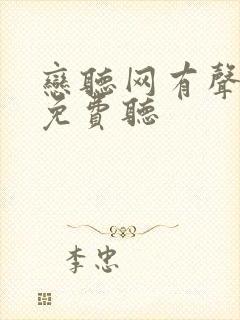 戀聽网有聲
免費聽
李忠